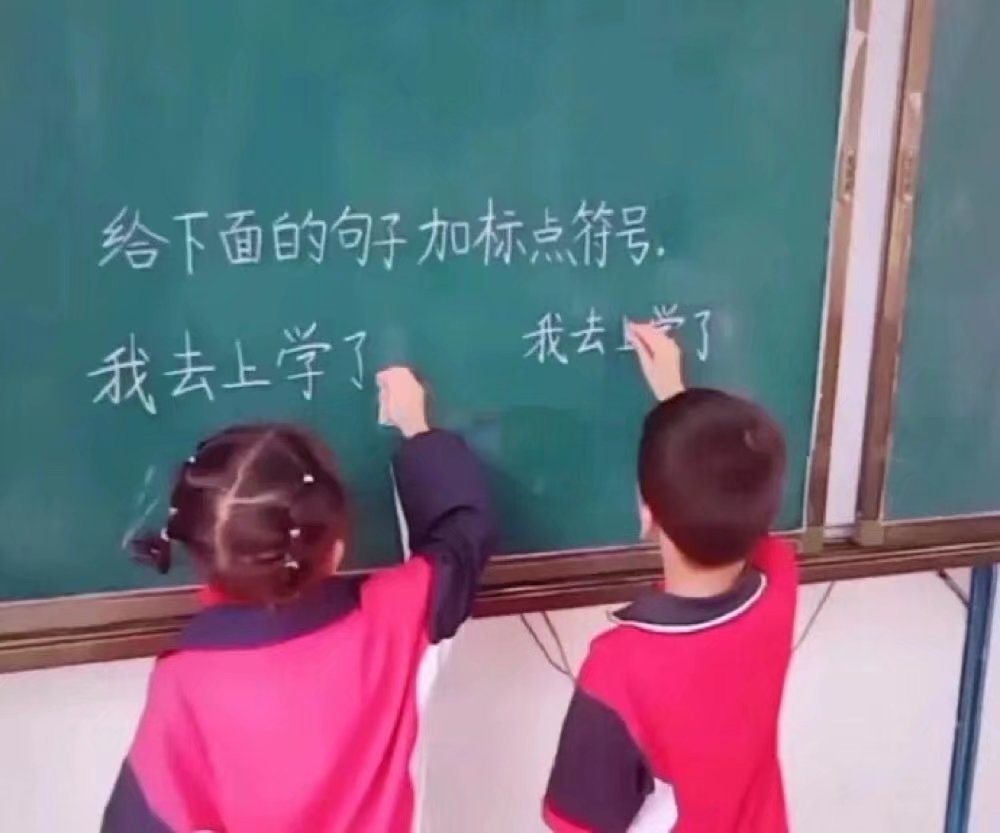 给下面的句子加标点符号.
我去上学了
我去上学了